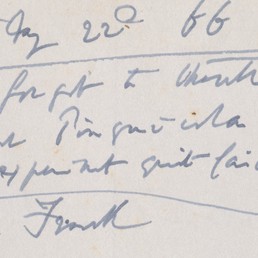 22º 66
forgot to thank
Pinguicula
experiment quite fair
Frank